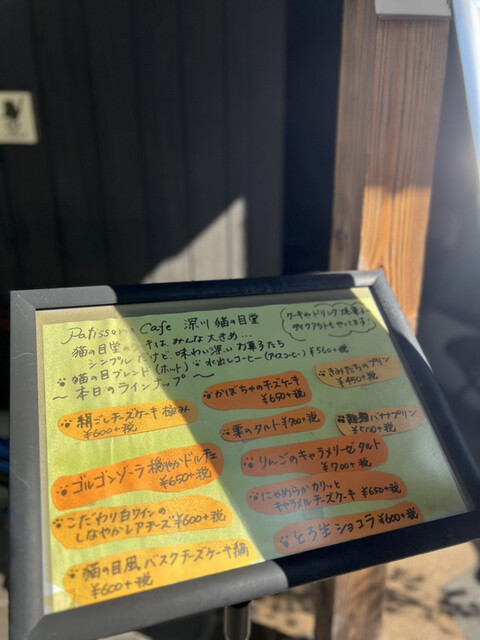 Patisserie Cafe 深川 猫の目堂
猫の目堂のケーキは、みんな大きめ…
シンプルだけど、味わい深いお菓子たち
猫の目ブレンド(ホット) 水出しコーヒー(アイスコーヒー) ¥560+税
〜本日のラインナップ〜
ケーキやドリンク、焼菓子
テイクアウトもやってます!
絹ごしチーズケーキ 極み
¥600+税
ゴルゴンゾーラ 穏やかドルチェ
¥650+税
こだわり白ワインの
しなやかレアチーズ ¥600+税
猫の目風 バスクチーズケーキ
¥600+税
かぼちゃのチーズケーキ
¥650+税
栗のタルト ¥700+税
りんごのキャラメリーゼタルト
¥700+税
にゃめらか カリッと
キャラメルチーズケーキ ¥650+税
とろ生ショコラ ¥600+税
きみたちのプリン
¥450+税
バナナプリン
¥500+税